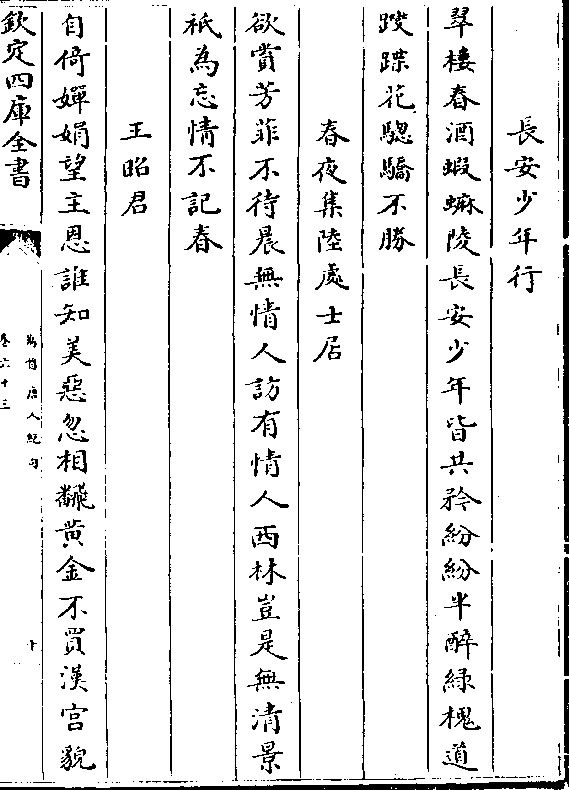 長安少年行
翠樓春酒蝦蟆陵長安少年皆共矜紛紛半醉緑槐道
䠠蹀花驄驕不勝
春夜集陸處士居
欲賞芳菲不待晨無情人訪有情人西林豈是無清景
祇為忘情不記春
王昭君
自倚嬋娟望主恩誰知美惡忽相翻黄金不買漢宫貌
欽定四庫全書
萬首唐人絶句
卷六十三
十